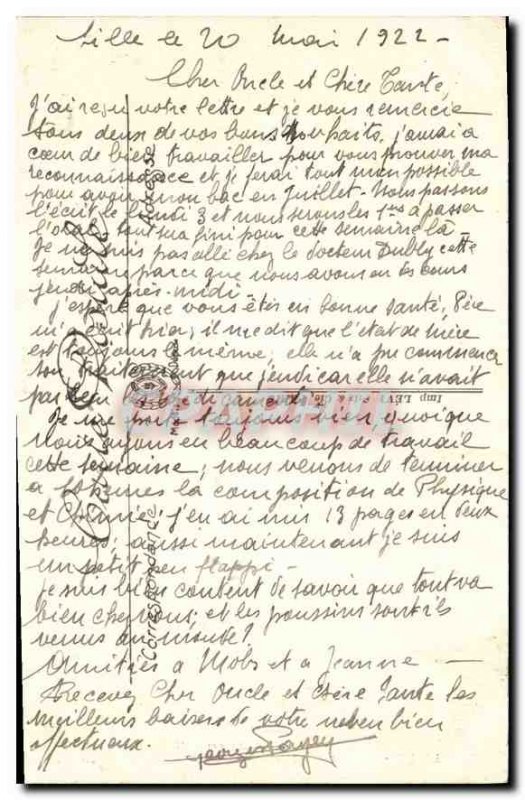 Lille le 20 mai 1922 -
Cher Oncle et Chère Tante,
J'ai reçu votre lettre et je vous remercie
tous deux de vos bons souhaits, j'aurai à
cœur de bien travailler pour vous prouver ma
reconnaissance et je ferai tout mon possible
pour avoir mon bac en Juillet - Nous passons
l'écrit le lundi 3 et nous serons les 1ers à passer
l'oral, tout sera fini pour cette semaine là -
Je ne suis pas allé chez le docteur Dubly cette
semaine parce que nous avons eu les cours
jeudi après-midi.
J'espère que vous êtes en bonne santé, Père
m'a écrit hier; il me dit que l'état de mère
est toujours le même; elle n'a pu commencer
son traitement que jeudi car elle n'avait
pas
Je me porte toujours bien, quoique
nous ayons eu beaucoup de travail
cette semaine; nous venons de terminer
à 10 heures la composition de Physique
et Chimie; j'en ai mis 13 pages en deux
heures; aussi maintenant je suis
un petit peu flappi -
Je suis bien content de savoir que tout va
bien chez vous; et les poussins sont-ils
venus au monde?
Amitiés à Mobs et à Jeanne -
Recevez Cher Oncle et Chère Tante les
meilleurs baisers de votre neveu bien
affectueux.
Carte Postale
Correspondance
Adresse
Imp LEVY